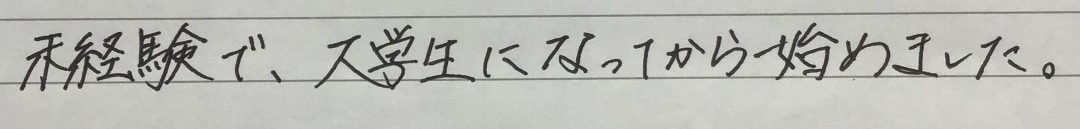 未経験で、大学生になってから始めました。